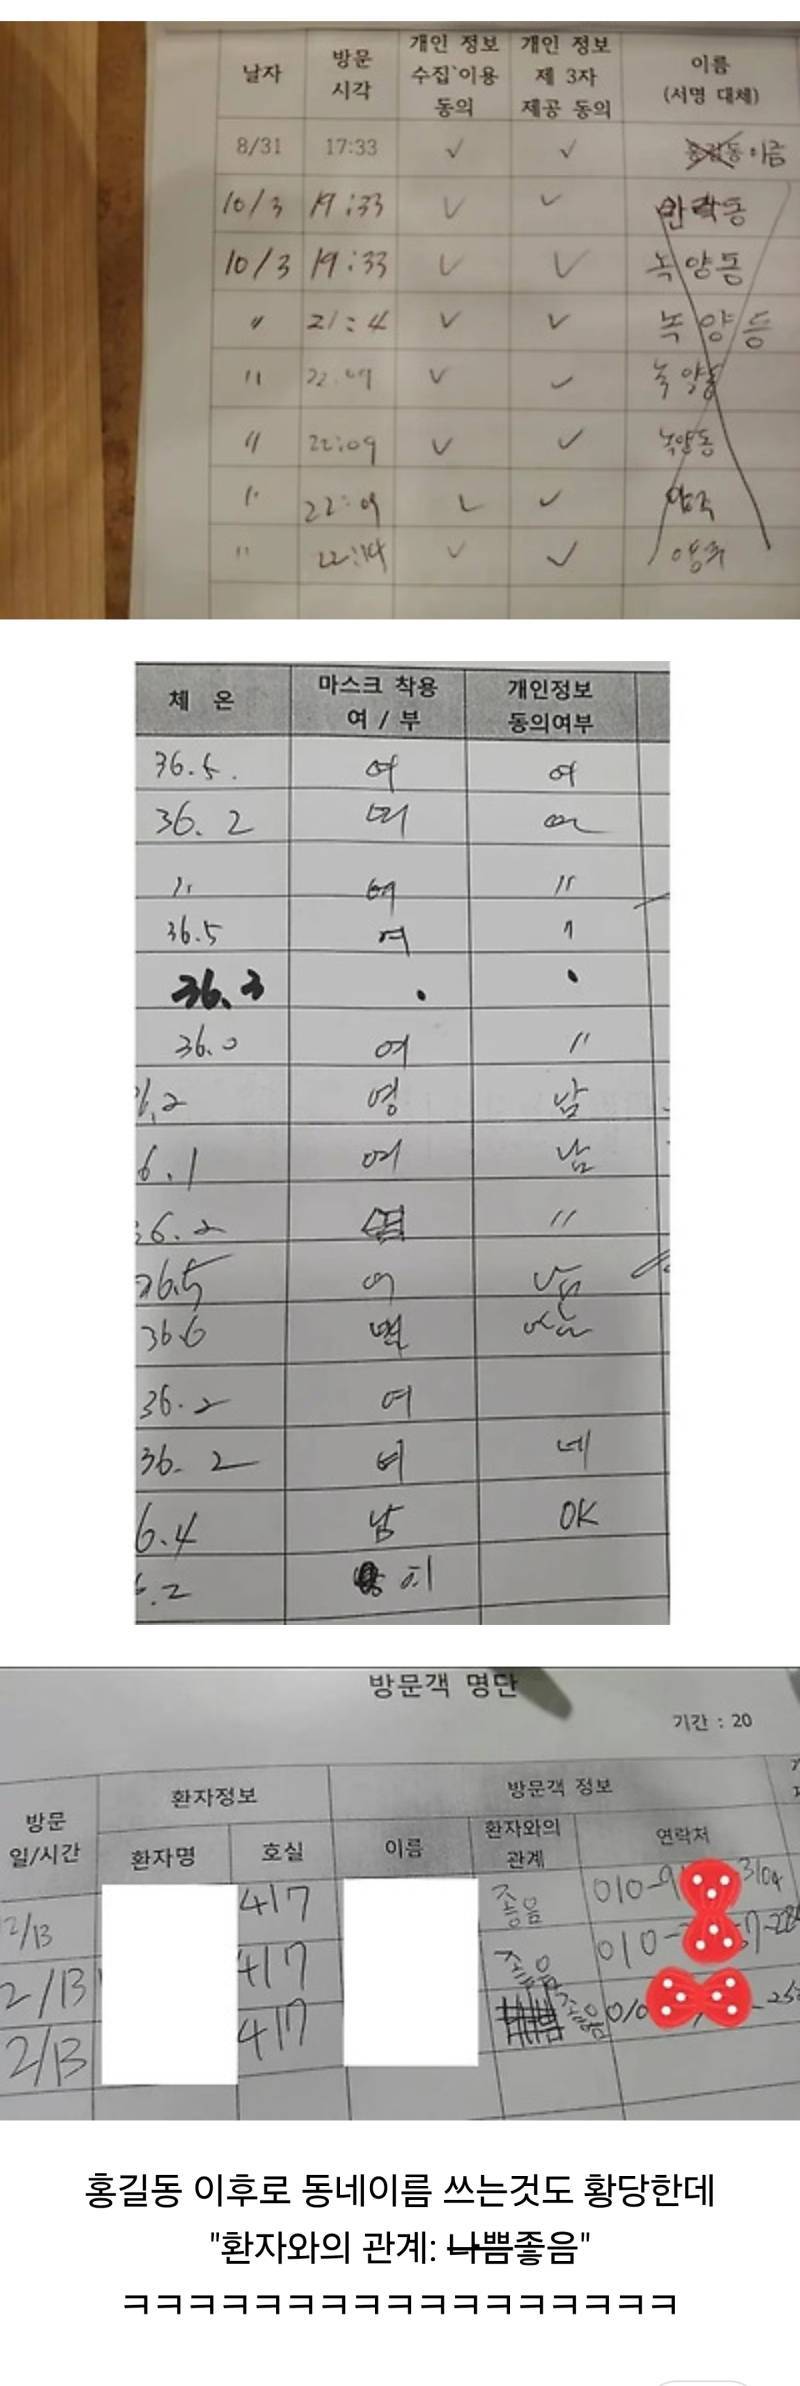 날자 방문 시각 개인 정보 수집`이용 동의 개인 정보 제 3자 제공 동의 이름 (서명 대체)
8/31 17:33 ✓ ✓ 홍길동 이름
10/3 19:33 ✓ ✓ 안락동
10/3 19:33 ✓ ✓ 녹양동
〃 21:4 ✓ ✓ 녹양동
〃 ✓ ✓ 녹양동
〃 22:09 ✓ ✓ 녹양동
〃 22:09 ✓ ✓
〃 22:14 ✓ ✓
체 온 마스크 착용 여 / 부 개인정보 동의여부
36.5. 여 여
36.2 여
〃 여 〃
36.5 여 〃
36.3 . .
36.0 여 〃
6.2 남
6.1 여 남
36.2 〃
36.5 여 남
36.6
36.2 여
36.2 여 네
6.4 남 OK
6.2
방문객 명단
기간 : 20
방문 일/시간 환자정보 방문객 정보
환자명 호실 이름 환자와의 관계 연락처
2/13 417 좋음 010-9 3104
2/13 417 좋음 010-
2/13 417 좋음 010
홍길동 이후로 동네이름 쓰는것도 황당한데
"환자와의 관계: 나쁨좋음"
ㅋㅋㅋㅋㅋㅋㅋㅋㅋㅋㅋㅋㅋㅋㅋㅋㅋ